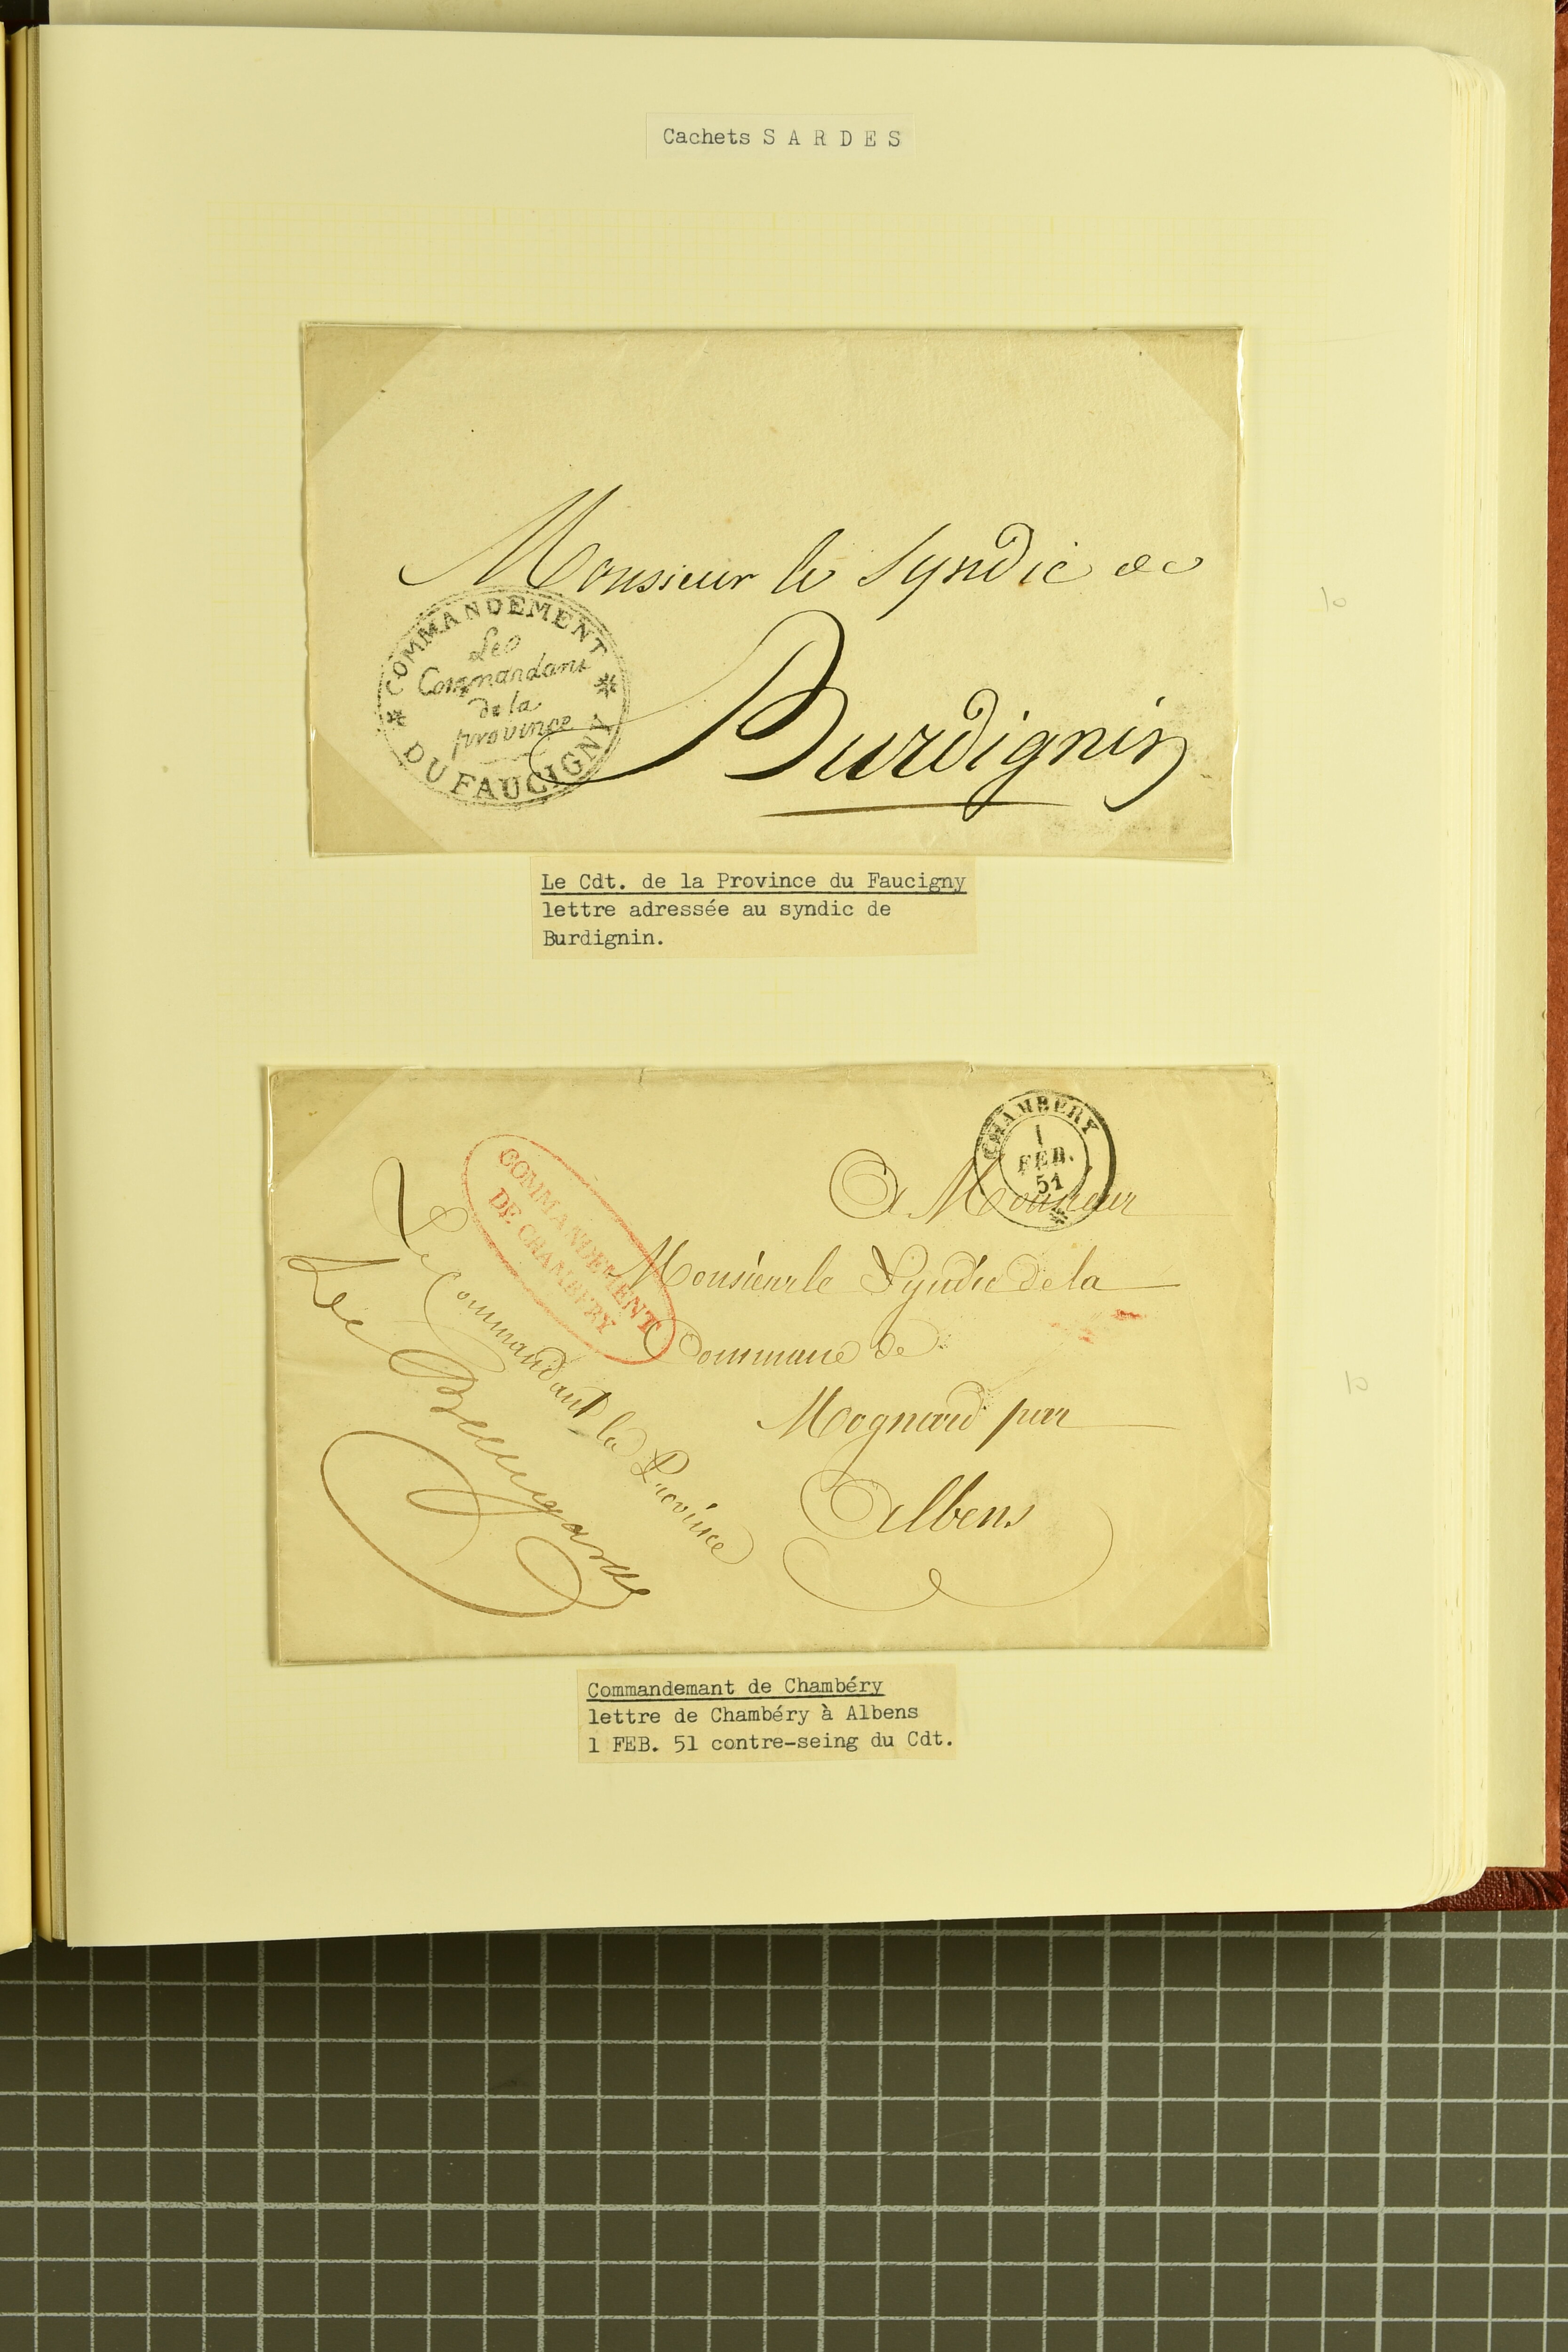 Cachets S A R D E S
Monsieur le Syndic de
Burdignin
COMMANDEMENT
Le
Commandant
de la
province
DU FAUCIGNY
Le Cdt. de la Province du Faucigny
lettre adressée au syndic de
Burdignin.
10
CHAMBERY
1
FEB.
51
A Monsieur
Monsieur le Syndic de la
Commune de
Mognard par
Albens
COMMANDEMENT
DE CHAMBERY
Le Commandant la Province
10
Commandemant de Chambéry
lettre de Chambéry à Albens
1 FEB. 51 contre-seing du Cdt.